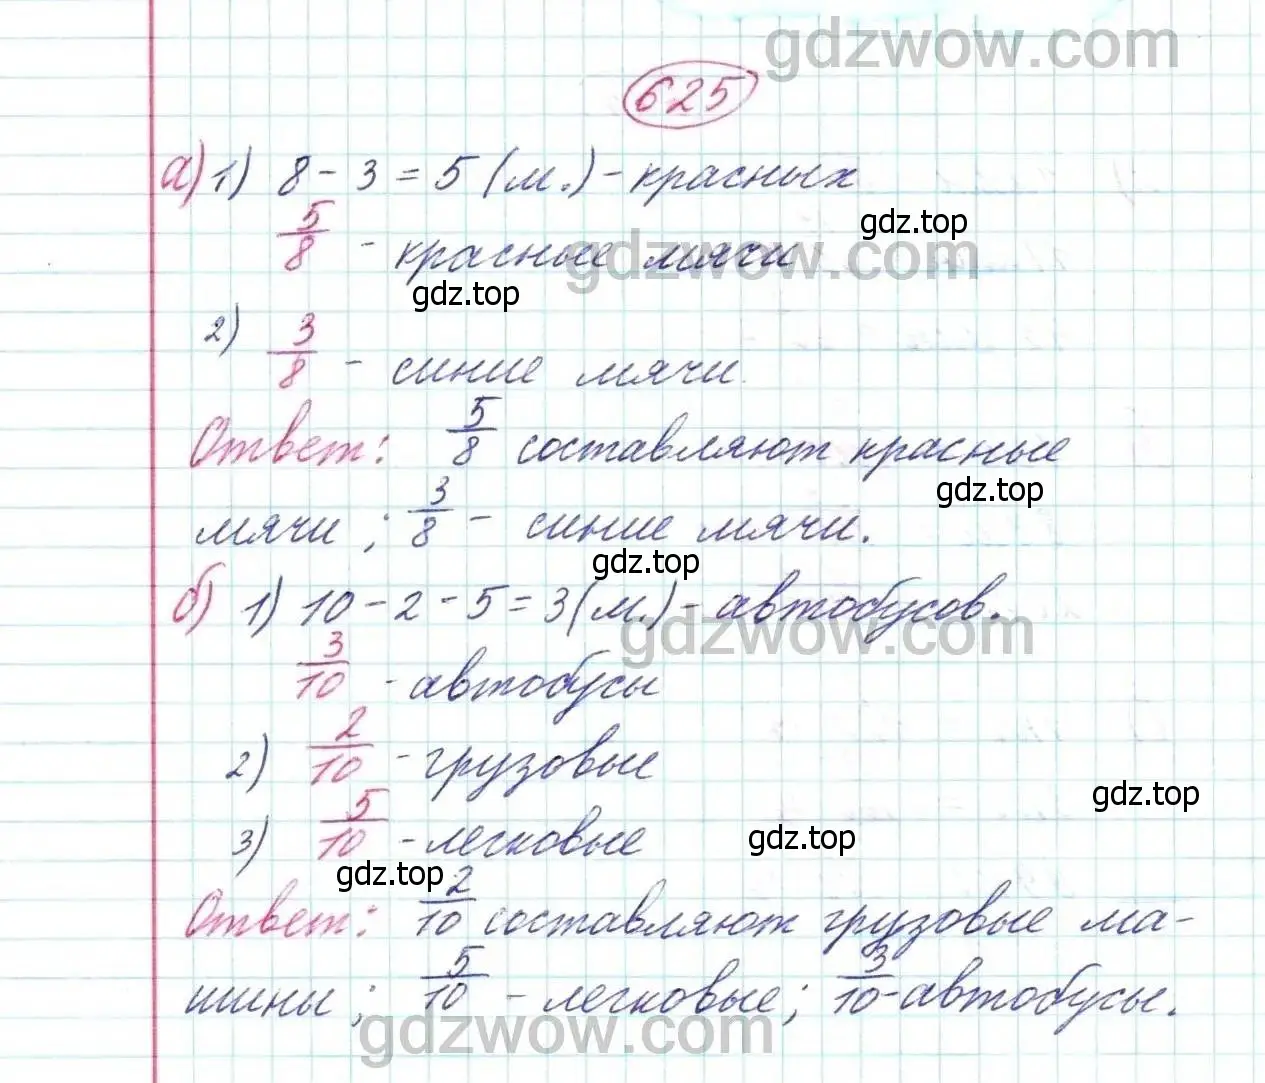 gdzwow.com
625
а) 1) 8 - 3 = 5 (м.) - красных
gdz.top
5/8 - красные мячи
gdzwow.com
gdz.top
2) 3/8 - синие мячи.
Ответ: 5/8 составляют красные
gdz.top
мячи ; 3/8 - синие мячи.
gdz.top
б) 1) 10 - 2 - 5 = 3 (м.) - автобусов.
gdzwow.com
3/10 - автобусы
2) 2/10 - грузовые
gdz.top
3) 5/10 - легковые
gdz.top
gdz.top
Ответ: 2/10 составляют грузовые ма-
шины ; 5/10 - легковые; 3/10 - автобусы.
gdzwow.com